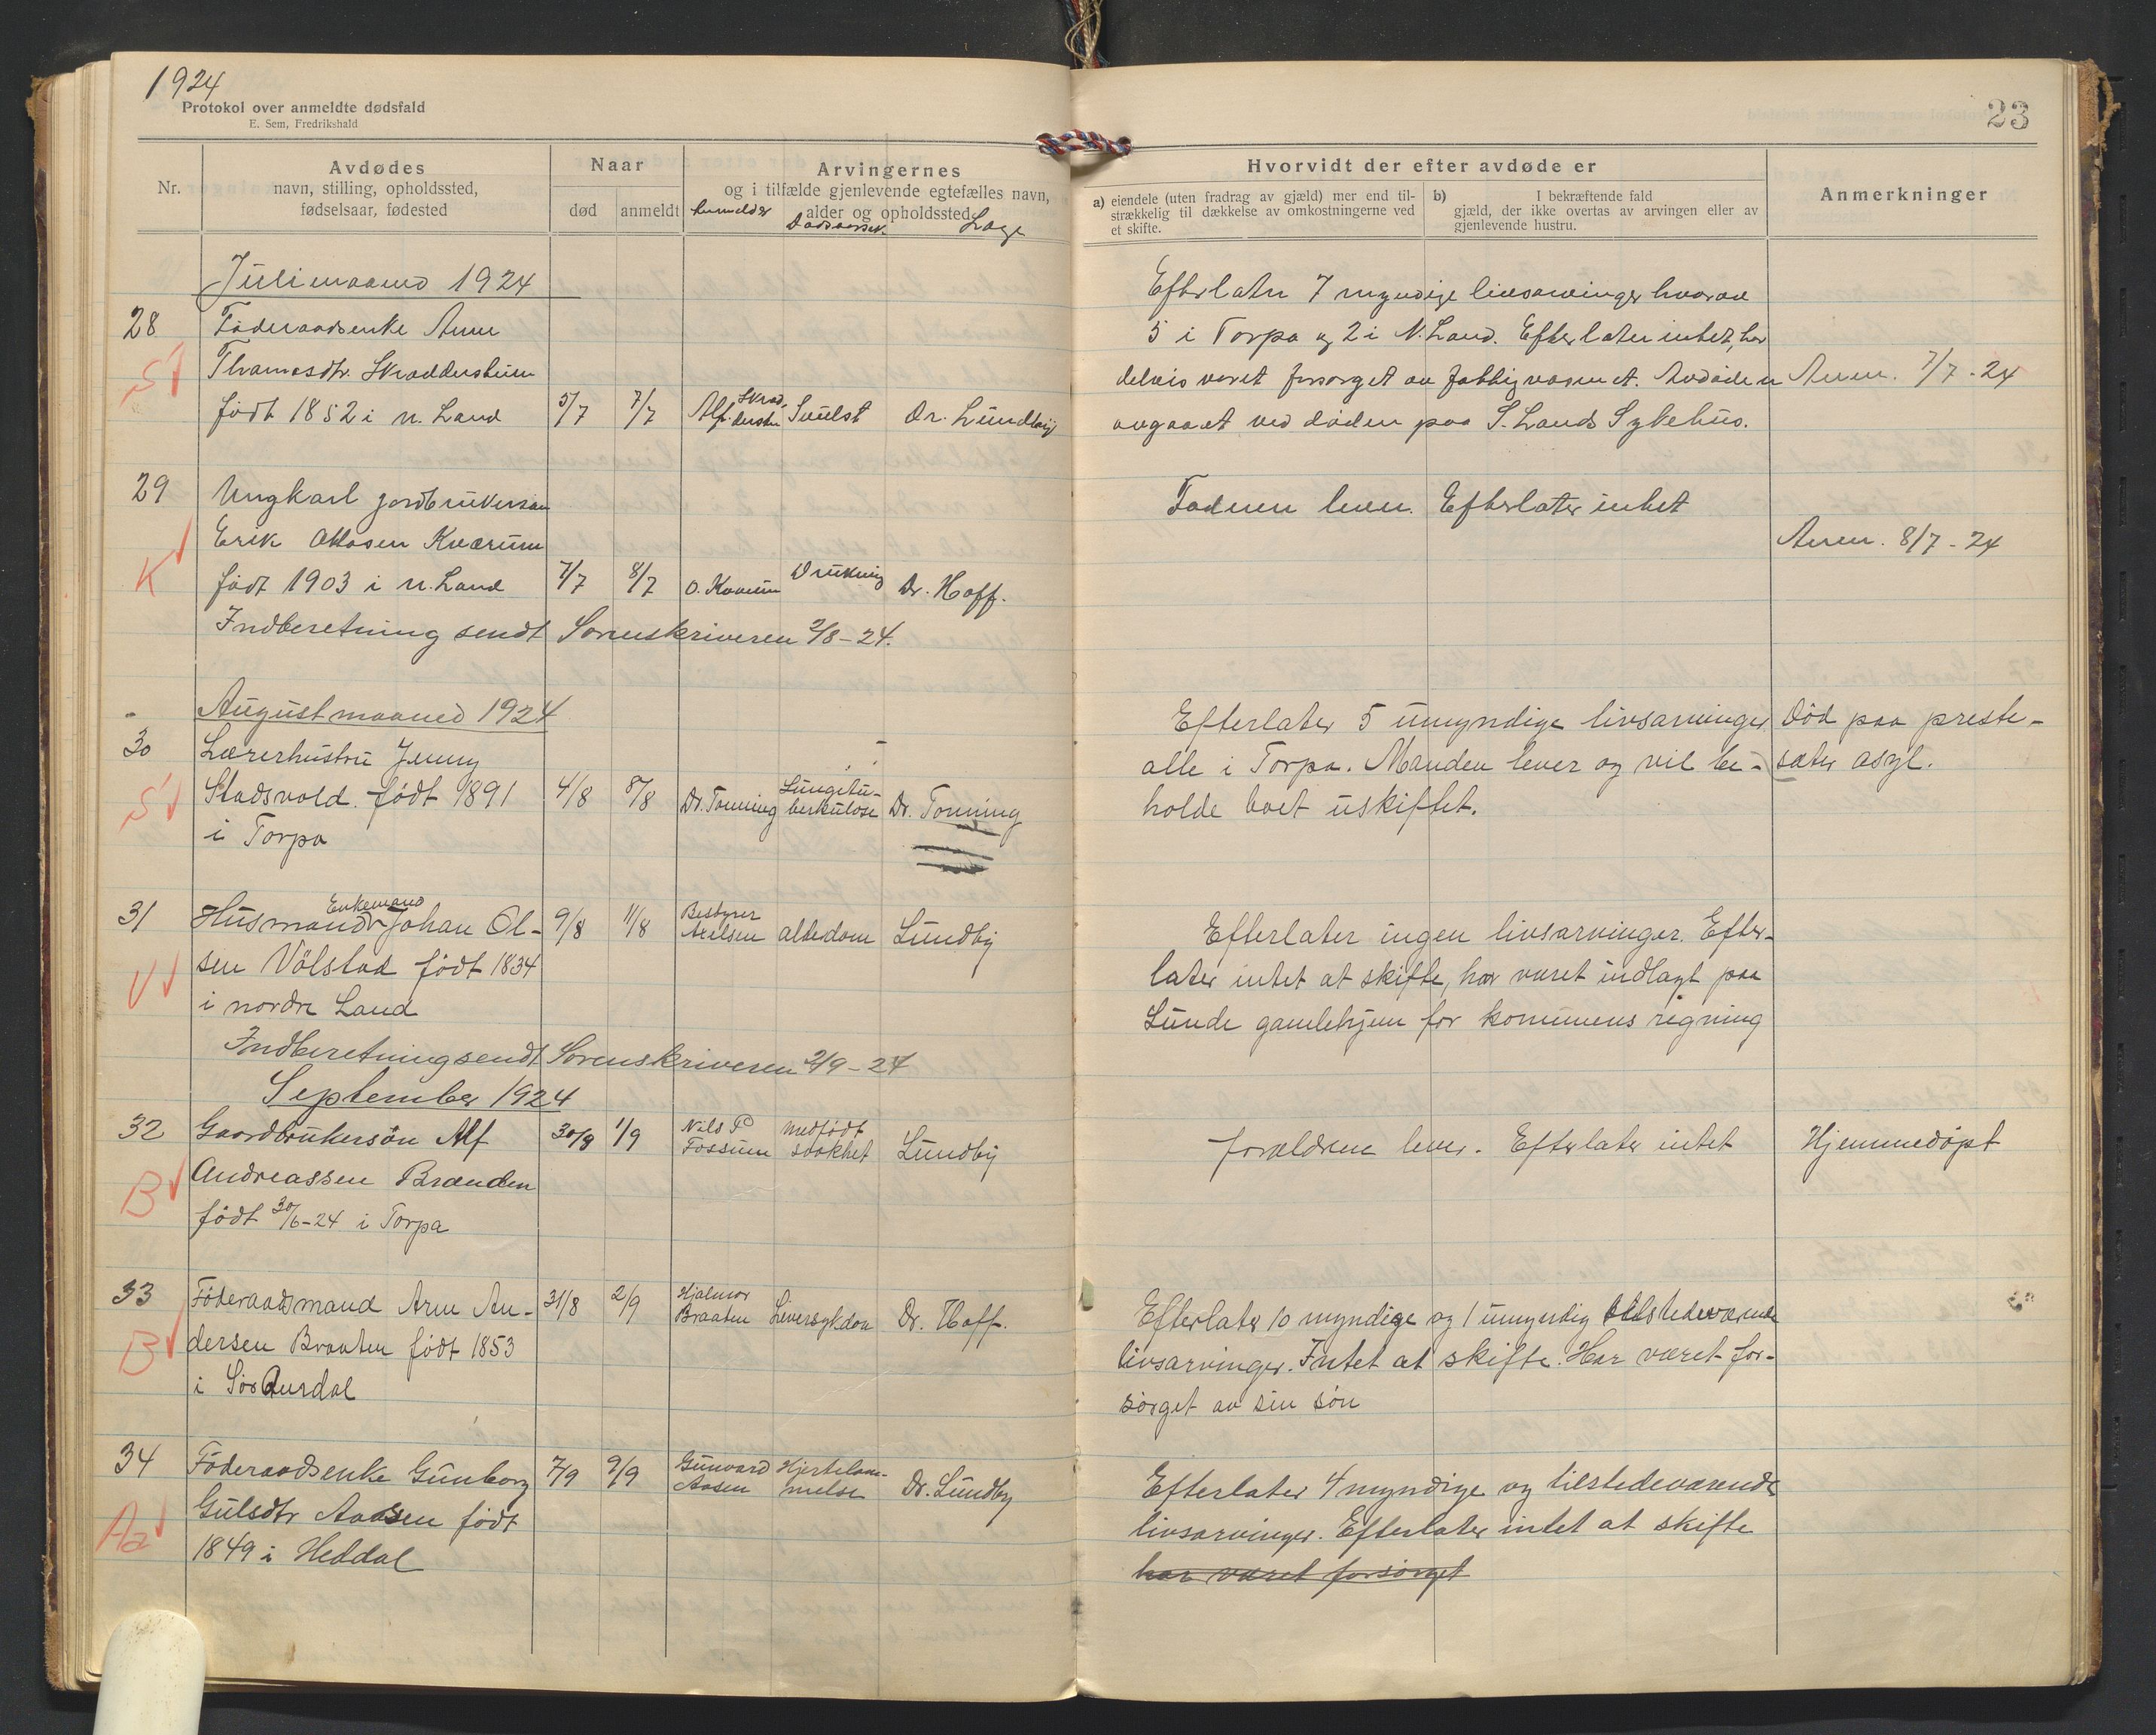 1924
Protokol over anmeldte dødsfald
E. Sem, Fredrikshald
23
Nr.
Avdødes
navn, stilling, opholdssted,
fødselsaar, fødested
Naar
død
anmeldt
Arvingernes
og i tilfælde gjenlevende egtefælles navn,
alder og opholdssted
Dødsaarsak
Læge
Hvorvidt der efter avdøde er
a) eiendele (uten fradrag av gjæld) mer end til-
strækkelig til dækkelse av omkostningerne ved
et skifte.
b) I bekræftende fald
gjæld, der ikke overtas av arvingen eller av
gjenlevende hustru.
Anmerkninger
Juli maaned 1924
28
Föderaadsenke Anne
Thomasdtr. Skræddershuen
født 1852 i n. Land
5/7
7/7
Alf Skræd-
dershu
Svulst
Dr. Lundby
Efterlater 7 myndige livsarvinger hvorav
5 i Torpa og 2 i N. Land. Efterlater intet, har
delvis været forsørget av fattigvæsenet. Avdøde er
avgaaet ved døden paa S. Lands Sykehus.
Anm. 7/7-24
S
29
Ungkarl jordbrukersøn
Erik Ottosen Kværum
født 1903 i n. Land
7/7
8/7
O. Kværum
Drukning
Dr. Hoff.
Faderen lever. Efterlater intet
Anm. 8/7-24
K
Indberetning sendt Sorenskriveren 2/8-24.
August maaned 1924
30
Lærerhustru Jenny
Stadsvold. født 1891
i Torpa
4/8
8/8
Dr. Tonning
Lungetu-
berkulose
Dr. Tonning
Efterlater 5 umyndige livsarvinger
alle i Torpa. Manden lever og vil be-
holde boet uskiftet.
Død paa preste-
sæter asyl.
S
31
Enkemand
Husmand Johan Ol-
sen Völstad født 1834
i nordre Land
9/8
11/8
Bestyrer
Axelsen
alderdom
Lundby
Efterlater ingen livsarvinger. Efter-
later intet at skifte, har været indlagt paa
Lunde gamlehjem for kommunens regning
V
Indberetning sendt Sorenskriveren 2/9-24
September 1924
32
Gaardbrukersøn Alf
Andreassen Brænden
født 30/6-24 i Torpa
30/8
1/9
Nils P
Fossum
medfødt
svakhet
Lundby
forældrene lever. Efterlater intet
Hjemmedøpt
B
33
Föderaadsmand Arne An-
dersen Braaten født 1853
i Sør Aurdal
31/8
2/9
Hjalmar
Braaten
Leversykdom
Dr. Hoff.
Efterlater 10 myndige og 1 umyndig tilstedeværende
livsarvinger. Intet at skifte. Har været for-
sørget av sin søn
B
34
Föderaadsenke Gunborg
Gulsdtr Aasen født
1849 i Heddal
7/9
9/9
Gunvard
Aasen
Hjertelam-
melse
Dr. Lundby
Efterlater 4 myndige og tilstedeværende
livsarvinger. Efterlater intet at skifte
har været forsørget
Aa